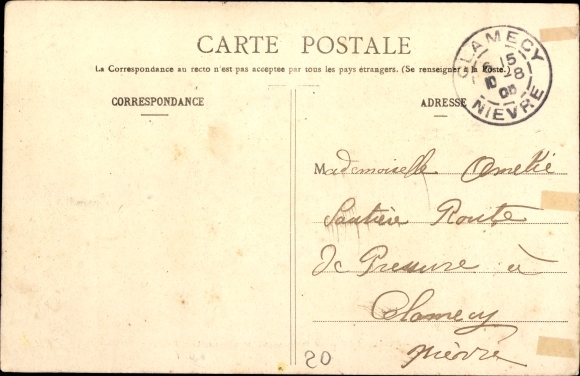 CARTE POSTALE
La Correspondance au recto n'est pas acceptée par tous les pays étrangers. (Se renseigner à la Poste.)
CORRESPONDANCE
ADRESSE
CLAMECY
6 15
10 28
NIEVRE
Mademoiselle Amelie
Route
De Pressure à
Clamecy
Nièvre
20